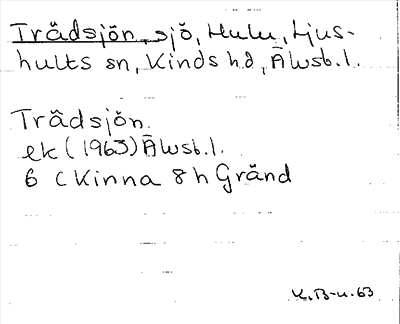 Trädsjön, sjö, Hulu, Ljus-
hults sn, Kinds hd, Älvsb.l.
Trädsjön
ek (1963) Älvsb.l.
6 C Kinna 8 h Gränd
K.B-u.63